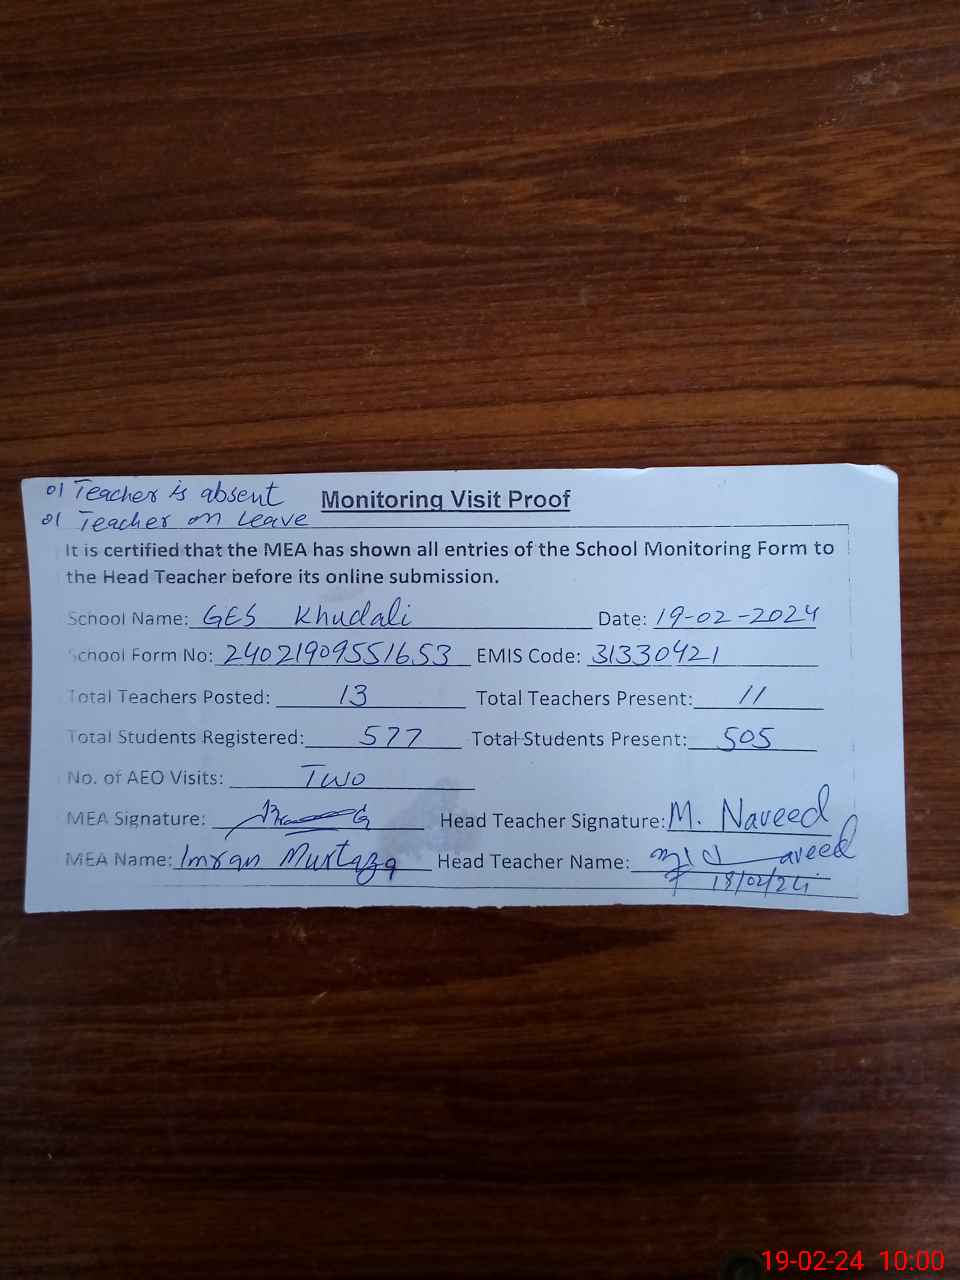 01 Teacher is absent
01 Teacher on Leave
Monitoring Visit Proof
It is certified that the MEA has shown all entries of the School Monitoring Form to
the Head Teacher before its online submission.
School Name: GES Khudali Date: 19-02-2024
School Form No: 24021909551653 EMIS Code: 31330421
Total Teachers Posted: 13 Total Teachers Present: 11
Total Students Registered: 577 Total Students Present: 505
No. of AEO Visits: Two
MEA Signature: Head Teacher Signature: M. Naveed
MEA Name: Imran Murtaza Head Teacher Name:
19-02-24 10:00